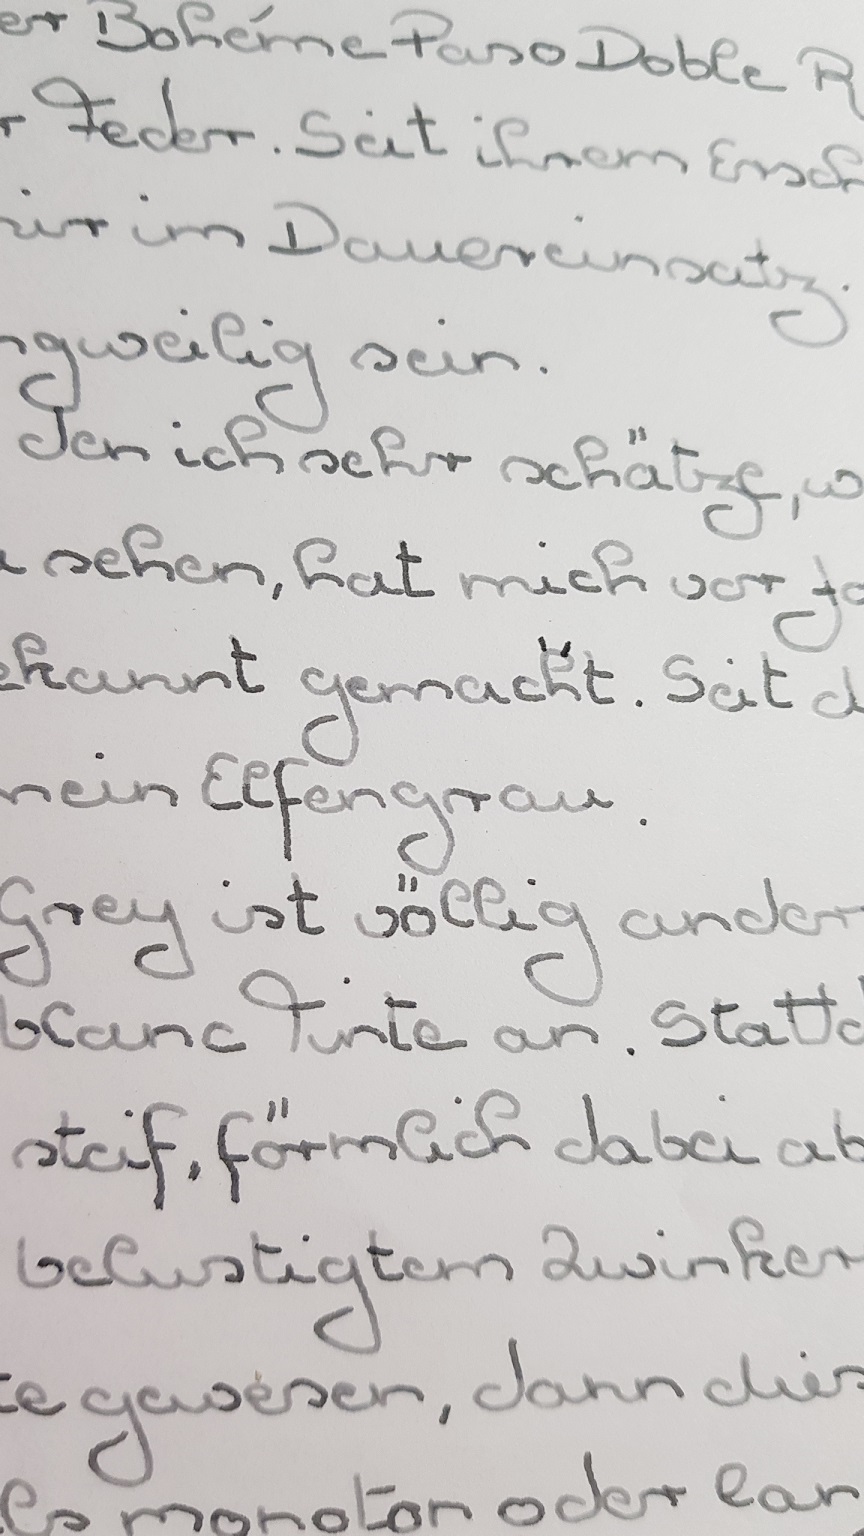 er Bohéme Paso Doble R
r Feder. Seit ihrem Ersch
mir im Dauereinsatz.
ngweilig sein.
den ich sehr schätze, w
u sehen, hat mich vor Ja
ekannt gemacht. Seit d
mein Elfengrau.
Grey ist völlig ander
blanc Tinte an. Stattd
steif, förmlich dabei ab
belustigtem Zwinker
te gewesen, dann dies
les monoton oder lan